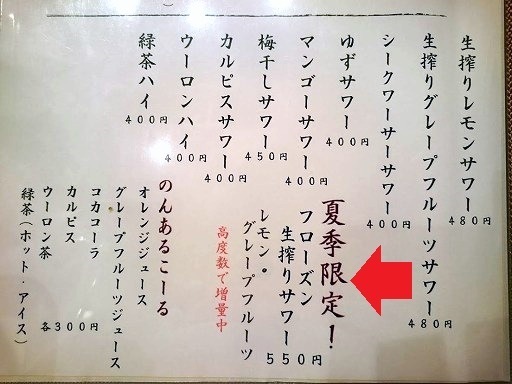 生搾りレモンサワー 480円
生搾りグレープフルーツサワー 480円
シークワーサーサワー 400円
ゆずサワー 400円
マンゴーサワー 400円
梅干しサワー 450円
カルピスサワー 400円
ウーロンハイ 400円
緑茶ハイ 400円
夏季限定!
フローズン
生搾りサワー 550円
レモン・
グレープフルーツ
高度数で増量中
のんあるこーる
オレンジジュース
グレープフルーツジュース
コカコーラ
カルピス
ウーロン茶
緑茶(ホット・アイス)
各300円